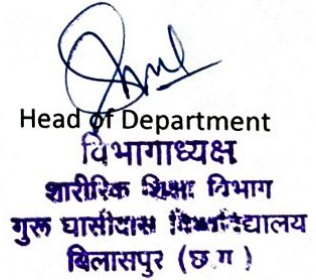 Head of Department
विभागाध्यक्ष
शारीरिक शिक्षा विभाग
गुरू घासीदास विश्वविद्यालय
बिलासपुर (छ.ग)